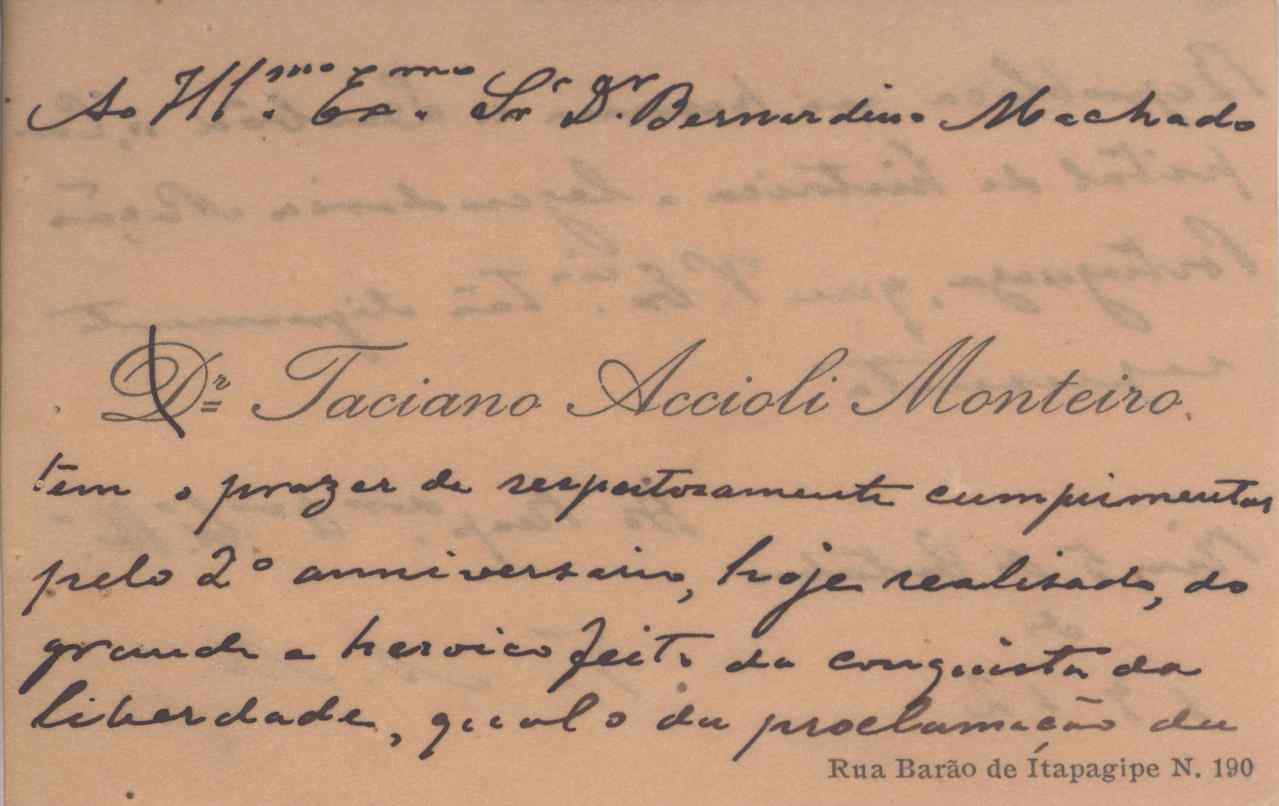 Ao Ill.mo Ex.mo Sr. Dr. Bernardino Machado
Dr. Taciano Accioli Monteiro
tem o prazer de respeitosamente cumprimentar
pelo 2º anniversario, hoje realisado, do
grande e heroico feito da conquista da
liberdade, qual o da proclamação da
Rua Barão de Itapagipe N. 190